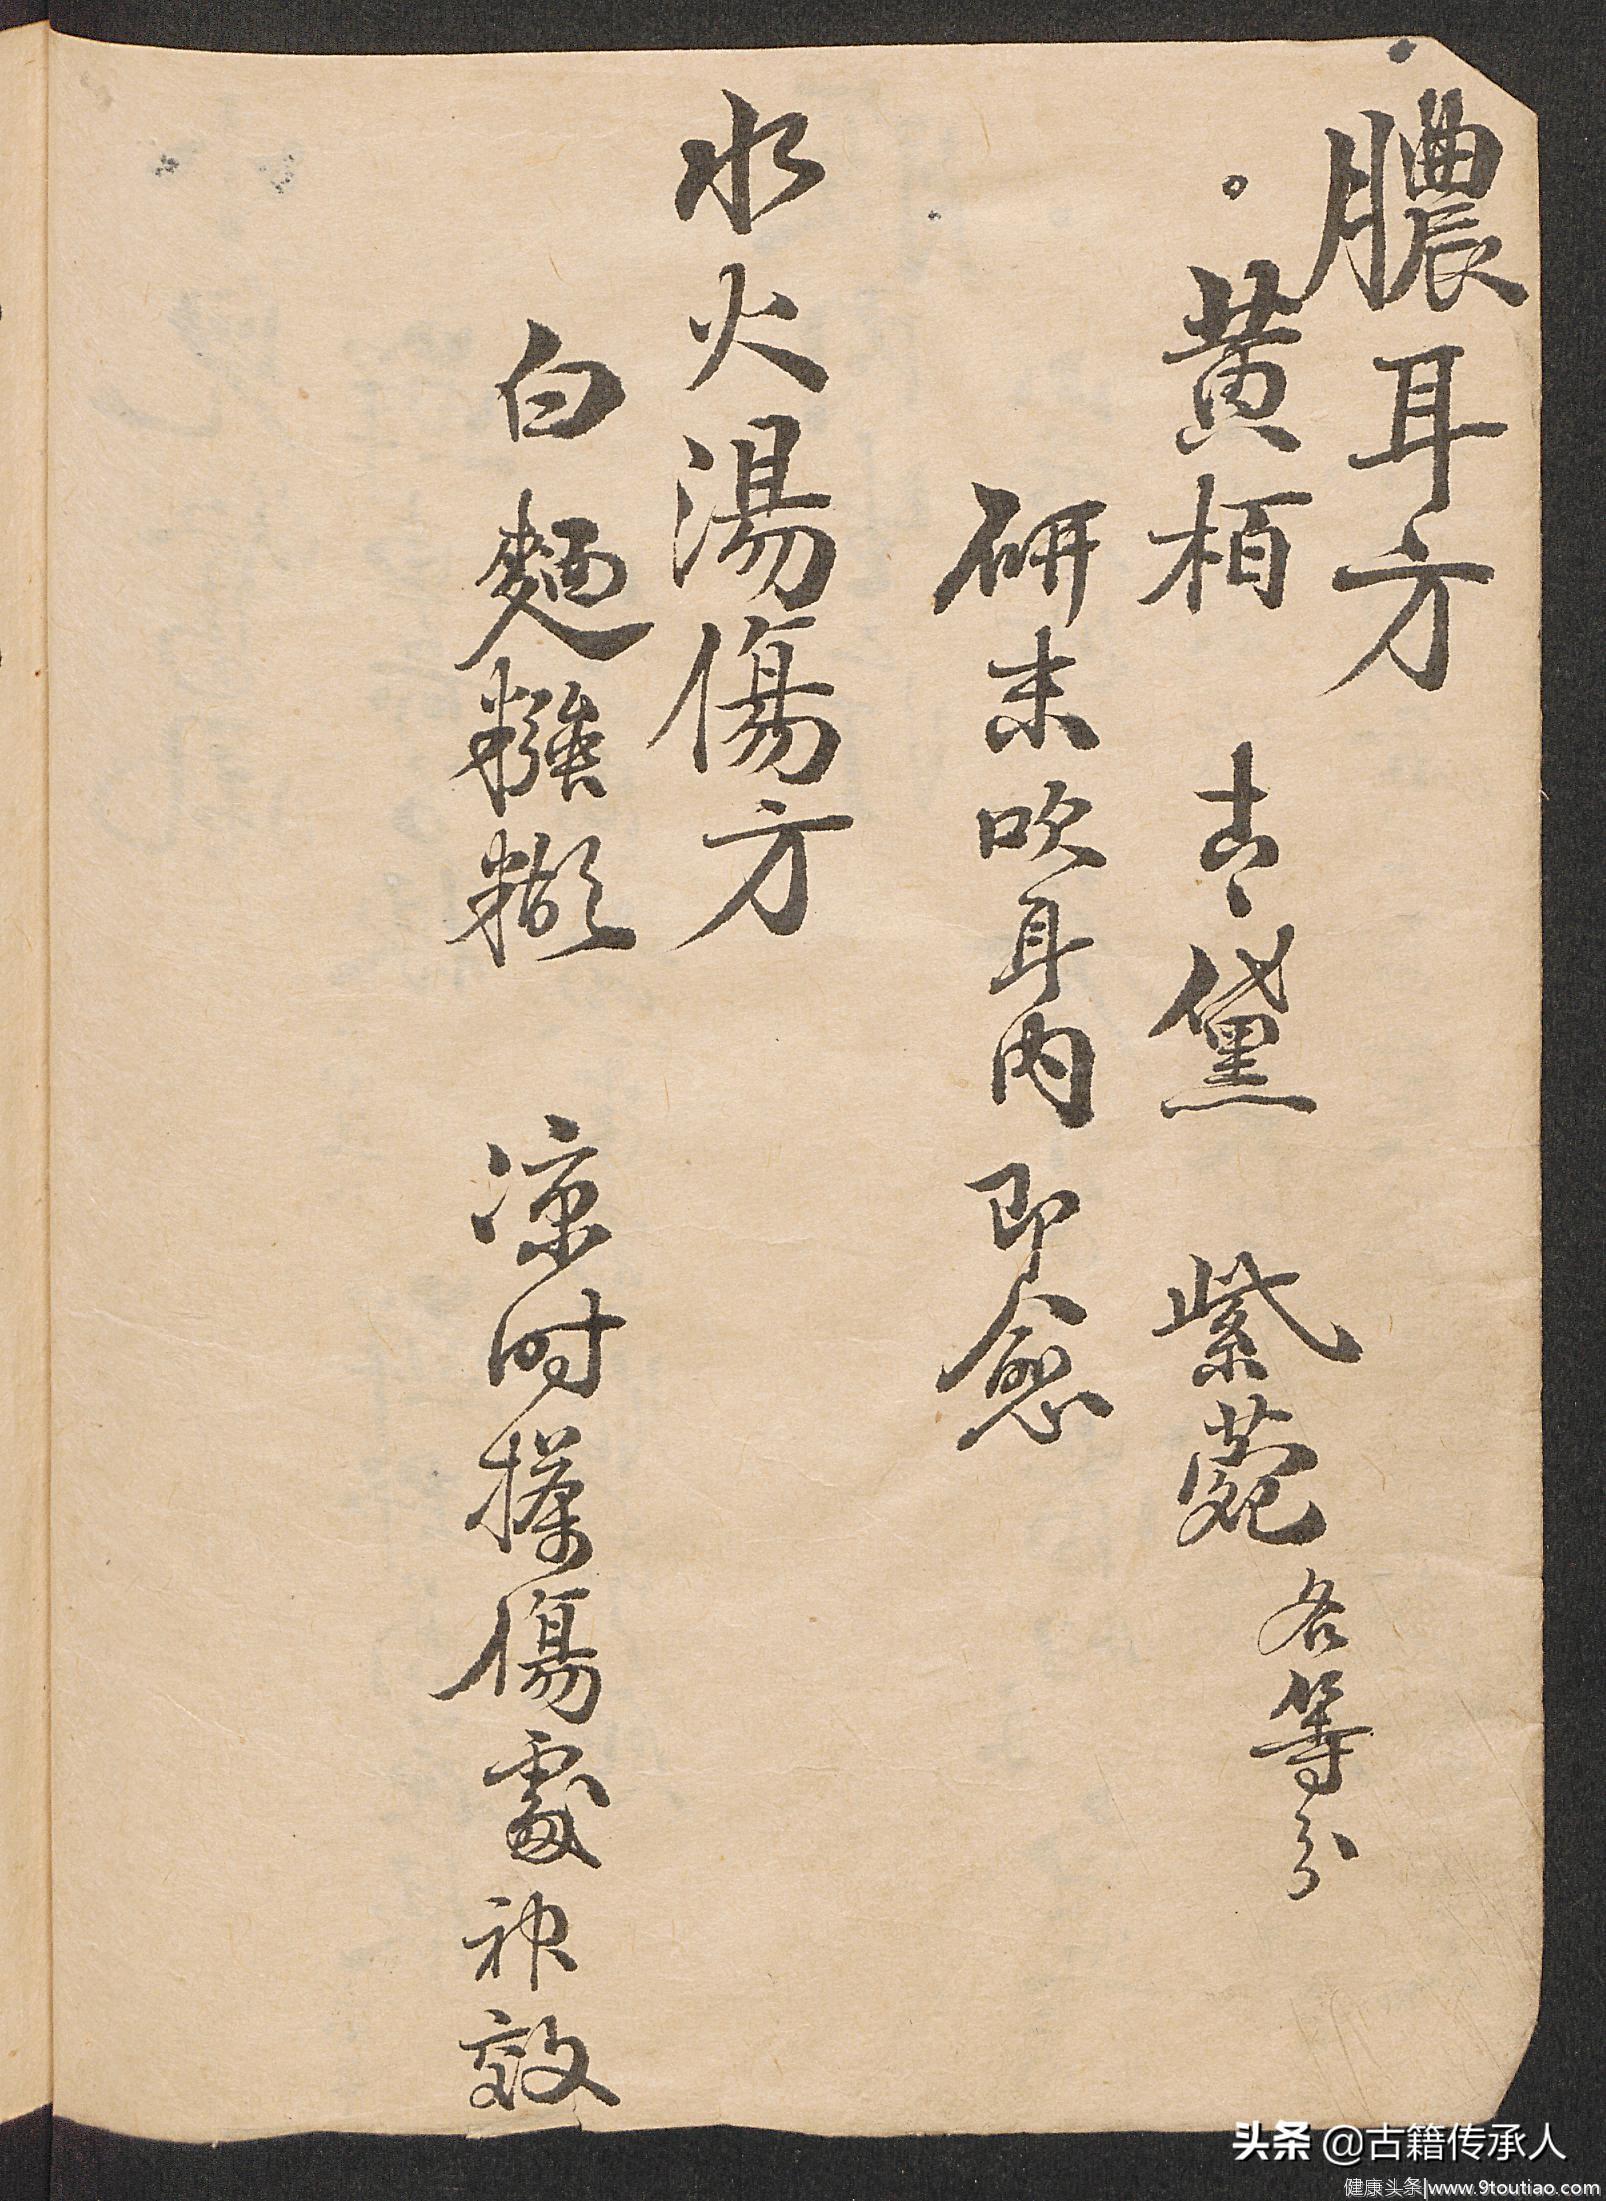 膿耳方
黃栢 青黛 紫菀 各等分
研末吹耳內即愈
水火湯傷方
白麵糨糊 凉时搽傷處神效
头条 @古籍传承人
健康头条|www.9toutiao.com